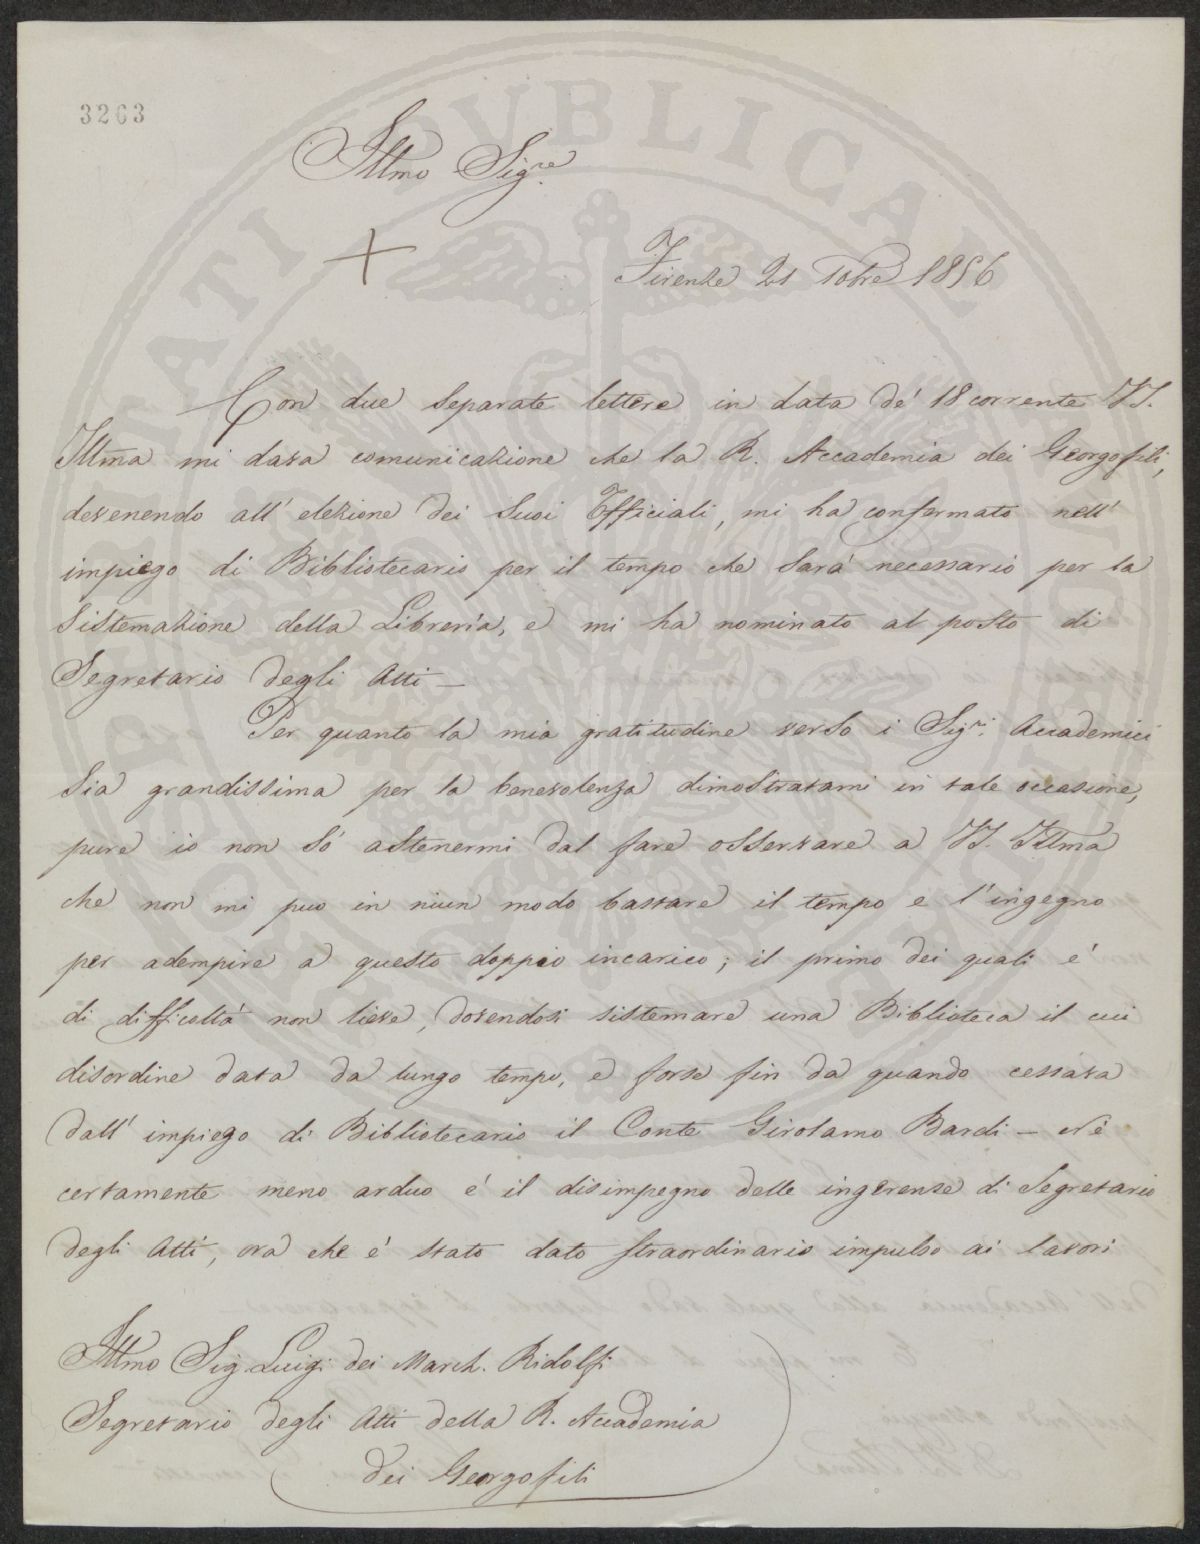 3263
PROSPERITATI PUBLICAE AUGENDAE
Illmo Sigre
Firenze 21 1856
Con due separate lettere in data de' 18 corrente VS.
Illma mi dava comunicazione che la R. Accademia dei Georgofili,
devenendo all' elezione dei Suoi Officiali, mi ha confermato nell'
impiego di Bibliotecario per il tempo che Sarà necessario per la
Sistemazione della Libreria, e mi ha nominato al posto di
Segretario degli Atti —
Per quanto la mia gratitudine verso i Sigri. Accademici
Sia grandissima per la benevolenza dimostratami in tale occasione,
pure io non Sò astenermi dal fare osservare a VS. Illma
che non mi puo in niun modo bastare il tempo e l'ingegno
per adempire a questo doppio incarico; il primo dei quali è
di difficoltà non lieve, dovendosi sistemare una Biblioteca il cui
disordine data da lungo tempo, e forse fin da quando cessava
dall' impiego di Bibliotecario il Conte Girolamo Bardi — Nè
certamente meno arduo è il disimpegno delle ingerenze di Segretario
degli Atti, ora che è stato dato straordinario impulso ai lavori
Illmo Sig. Luigi dei March. Ridolfi
Segretario degli Atti della R. Accademia
dei Georgofili